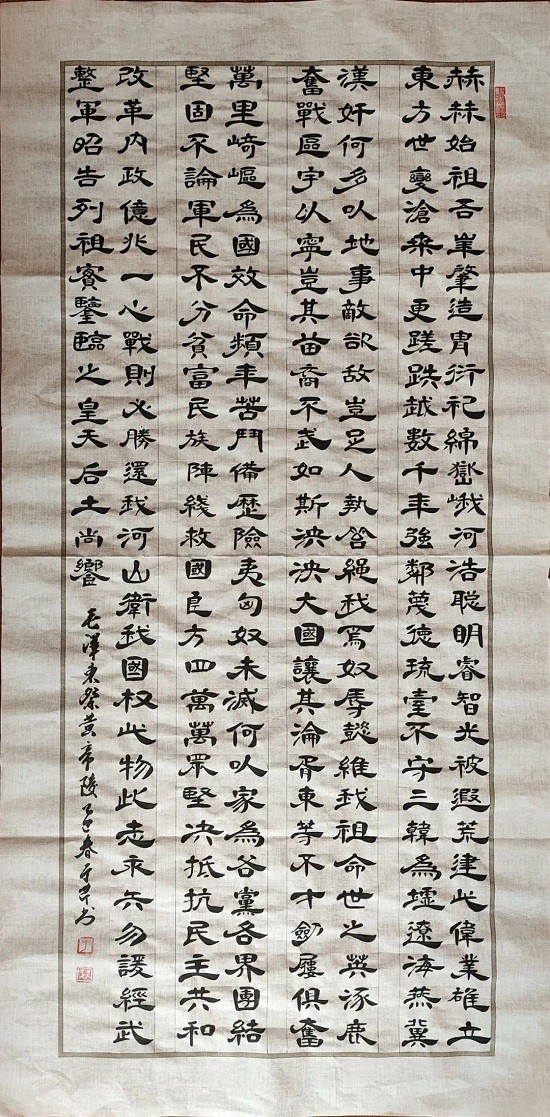 赫赫始祖吾華肇造冑衍祀綿嶽峨河浩聰明睿智光被遐荒建此偉業雄立
東方世變滄桑中更蹉跌越數千年強鄰蔑德琉臺不守三韓為墟遼海燕冀
漢奸何多以地事敵欲敌豈足人執笞繩我為奴辱懿維我祖命世之英涿鹿
奮戰區宇以寧豈其苗裔不武如斯泱泱大國讓其淪胥東等不才劍屨俱奮
萬里崎嶇為國效命頻年苦鬥備歷險夷匈奴未滅何以家為各黨各界團結
堅固不論軍民不分貧富民族陣綫救國良方四萬萬眾堅決抵抗民主共和
改革內政億兆一心戰則必勝還我河山衛我國權此物此志永矢勿諼經武
整軍昭告列祖實鑒臨之皇天后土尚饗 毛澤東祭黃帝陵 乙巳春